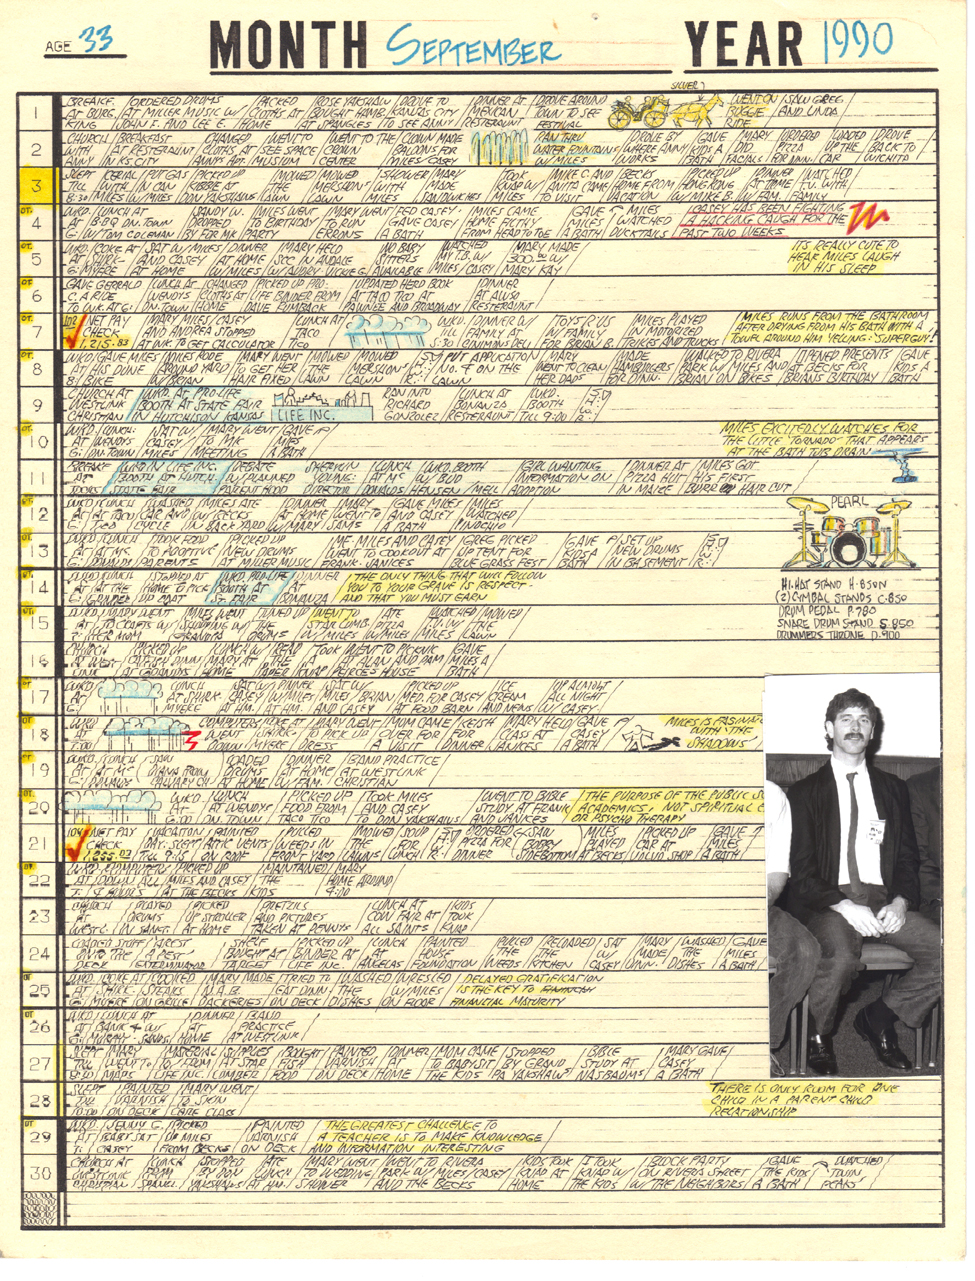 AGE 33 MONTH SEPTEMBER YEAR 1990
SILVER
1 BREAKF. / ORDERED DRUMS / PICKED / ROSE YAKSHAW / DROVE TO / DINNER AT / DROVE AROUND / WENT ON / SAW GREG
AT BURG. / AT MILLER MUSIC W / CLOTHS AT / BOUGHT HAMB. / KANSAS CITY / MEXICAN / TOWN TO SEE / BUGGIE / AND LINDA
KING / JOHN F. AND LEE E. / HOME / AT SPANGLES / TO SEE ANNY / RESTERAUNT / FESTIVAL / RIDE
2 CHURCH / BREAKFAST / CHANGED / WENT TO / WENT TO THE / CLOWN MADE / RAN THRU / DROVE BY / GAVE / MARY / ORDERED / LOADED / DROVE
WITH / AT RESTERAUNT / CLOTHS AT / SEE SPACE / CROWN / BALOONS FOR / WATER FOUNTAINS / WHERE ANNY / KIDS A / DID / PIZZA / UP THE / BACK TO
ANNY / IN KS CITY / ANNYS APT. / MUSIUM / CENTER / MILES/CASEY / W/ MILES / WORKS / BATH / FACIALS / FOR DINN. / CAR / WICHITA
3 SLEPT / CERIAL / PUT GAS / PICKED UP / MOWED / MOWED / SHOWER / MARY / TOOK / MIKE C. AND / BECKS / PICKED UP / DINNER / WATCHED
TILL / WITH / IN CAN / KIBBIE AT / THE / MERSHON'S / WITH / MADE / KNAP W/ / ANITA CAME / HOME FROM / HONG KONG / AT HOME / T.V. WITH
8:30 / MILES / W/ MILES / DON YAKSHAWS / LAWN / LAWN / MILES / SANDWICHES / MILES / TO VISIT / VACATION / W/ MIKE B. / W/ FAM. / FAMILY
4 OT. WKD. / LUNCH AT / SANDY W. / MILES WENT / MARY WENT / RED CASEY / MILES CAME / GAVE / MILES / CASEY HAS BEEN FIGHTING
AT / B.B.Q DN. TOWN / DROPPED / TO BIRTHDAY / TO RUN / GAVE CASEY / HOME FILTHY / MILES / WATCHED / A HACKING CAUGH FOR THE
G. / W/ TOM COLEMAN / BY FOR MK / PARTY / ERRONS / A BATH / FROM HEAD TO TOE / A BATH / DUCKTAILS / PAST TWO WEEKS
5 OT. WKD. / COKE AT / DAT W/ MILES / DINNER / MARY HELD / NO BABY / WATCHED / MARY MADE / ITS REALLY CUTE TO
AT / SHIRK- / AND CASEY / AT HOME / SCC IN ANDALE / SITTERS / MY T.B. W / 300.00 W / HEAR MILES LAUGH
G. / MYERE / AT HOME / W/ MILES / W/ AUDRY VICKIE G. / AVAILABLE / MILES/CASEY / MARY KAY / IN HIS SLEEP
6 OT. GAVE GERRALD / LUNCH AT / CHANGED / PICKED UP PRO- / UPDATED HERD BOOK / DINNER
A RIDE / WENDYS / CLOTHS AT / LIFE BINDER FROM / AT TACO TICO AT / AT ALUSO
TO WK. AT G. / DN. TOWN / HOME / DAVE RUMBACK / PAWNEE AND BROADWAY / RESTERAUNT
7 OT. 102 NET PAY / MARY MILES/CASEY / LUNCH AT / WKD. / DINNER W/ / TOYS R US / MILES PLAYED / MILES RUNS FROM THE BATHROOM
CHECK / AND ANDREA STOPPED / TACO / TILL / FAMILY AT / W/ FAMILY / IN MOTORIZED / AFTER DRYING FROM HIS BATH WITH A
1,215.83 / AT WK. TO GET CALCULATOR / TICO / 5:30 / CONIMONS DELI / FOR BRIAN B. / TRIKES AND TRUCKS / TOWEL AROUND HIM YELLING: "SUPERGUY!"
8 WKD. / GAVE MILES / MILES RODE / MARY WENT / MOWED / MOWED / PUT APPLICATION / MARY / MADE / WALKED TO RIVERA / OPENED PRESENTS / GAVE
AT / HIS DUNE / AROUND YARD / TO GET HER / THE / MERSHON'S / NO. 4 ON THE / WENT TO CLEAN / HAMBURGERS / PARK W/ MILES AND / AT BECKS FOR / KIDS A
8: / BIKE / W/ BRIAN / HAIR FIXED / LAWN / LAWN / LAWN / HER DADS / FOR DINN. / BRIAN ON BIKES / BRIANS BIRTHDAY / BATH
9 CHURCH AT / WKD. AT PRO-LIFE / RAN INTO / LUNCH AT / WKD.
WESTLINK / BOOTH AT STATE FAIR / RICHARD / BONANZA / BOOTH
CHRISTIAN / IN HUTCHISON KANSAS / LIFE INC. / GONZOLEZ / RESTERAUNT / TILL 9:00
10 OT. WKD. / LUNCH / DAT W/ / MARY WENT / GAVE / MILES EXCITEDLY WATCHES FOR
AT / WENDYS / CASEY / TO MK / MILES / THE LITTLE "TORNADO" THAT APPEARS
G. / DN. TOWN / MILES / MEETING / A BATH / AT THE BATH TUB DRAIN
11 BREAKF. / WKD IN LIFE INC. / DEBATE / SHERWIN / LUNCH / WKD. BOOTH / GIRL WANTING / DINNER AT / MILES GOT
AT / BOOTH AT HUTCH. / W/ PLANNED / YOUNG: / AT MC / W/ BUD / INFORMATION ON / PIZZA HUT / HIS FIRST
/ STATE FAIR / PARENT HOOD / DIRECTOR / DONALDS / HENSEN / MELL / ADOPTION / IN MAIZE / BURR HAIR CUT
12 OT. WKD. / LUNCH / WASHED / MILES ATE / DINNER / MARY / GAVE MILES / MILES / PEARL
AT / AT TACO / CAR AND / W/ BECKS / AT HOME / WENT TO / AND CASEY / WATCHED
G. / TICO / CYCLE / IN BACK YARD / W/ MARY / SAMS / A BATH / PINOCHIO
13 OT. WKD. / LUNCH / TOOK FOOD / PICKED UP / ME MILES AND CASEY / GREG PICKED / GAVE / SET UP
AT / AT MC. / TO ADOPTIVE / NEW DRUMS / WENT TO COOKOUT AT / UP TENT FOR / KIDS A / NEW DRUMS
G. / DONALDS / PARENTS / AT MILLER MUSIC / FRANK & JANICES / BLUE GRASS FEST / BATH / IN BASEMENT
14 OT. WKD. / LUNCH / STOPPED AT / WKD. PRO-LIFE / DINNER / THE ONLY THING THAT WILL FOLLOW / HI-HAT STAND H-850N
AT / AT THE / HOME TO PICK / BOOTH AT / AT / YOU TO YOUR GRAVE IS RESPECT- / (2) CYMBAL STANDS C-850
G. / / UP COAT / S. FAIR / BONANZA / AND THAT YOU MUST EARN / DRUM PEDAL P-780
SNARE DRUM STAND S-850
DRUMMERS THRONE D-900
15 WKD. / MARY WENT / MILES WENT / TUNED UP / WENT TO / ATE / WATCHED / MOWED
AT / TO CRAFTS W/ / SHOPPING W/ / THE / STAR LUMB. / PIZZA / T.V. W/ / THE
7: / HER MOM / GRANDPA / DRUMS / W/ MILES / W/ MILES / MILES / LAWN
16 CHURCH / PICKED UP / LUNCH W/ / READ / TOOK / WENT TO PICKNIC / GAVE
AT WEST- / CATFISH DINN. / MARY AT / THE / A / AT ALAN AND PAM / MILES A
LINK / AT GRANDYS / HOME / PAPER / KNAP / PIERCES HOUSE / BATH
17 OT. WKD. / LUNCH / SAT W/ / DINNER / SAT W/ / PICKED UP / ICE / UP ALMOST
AT / AT SHIRK- / CASEY / W/ MILES / MILES BRIAN / MED. FOR CASEY / CREAM / ALL NIGHT
G. / MYERE / AT HM. / AT HM. / AND CASEY / AT FOOD BARN / AND NEWS / W/ CASEY
18 OT. WKD. / COMPUTERS / COKE AT / MARY WENT / MOM CAME / KEISH / MARY HELD / GAVE / MILES IS PASSING
AT / WENT / SHIRK- / TO PICK UP / OVER FOR / FOR / CLASS AT / CASEY / WITH "THE
7:00 / DOWN / MYERE / DRESS / A VISIT / DINNER / JANICES / A BATH / SHADOWS"
19 OT. WKD. / LUNCH / SAW / LOADED / DINNER / BAND PRACTICE
AT / AT MC. / DIANA FROM / DRUMS / AT HOME / AT WESTLINK
G. / DONALDS / CALVARY CH. / AT HOME / W/ FAM. / CHRISTIAN
20 OT. WKD. / LUNCH / PICKED UP / TOOK MILES / WENT TO BIBLE / THE PURPOSE OF THE PUBLIC S
AT / AT WENDYS / FOOD FROM / AND CASEY / STUDY AT FRANK / ACADEMICS, NOT SPIRITUAL E
6:00 / DN. TOWN / TACO TICO / TO DON YAKSHAWS / AND JANICES / OR PSYCHO THERAPY
21 104 NET PAY / VACATION / PAINTED / PULLED / MOWED / SOUP / ORDERED / SAW / MILES / PICKED UP / GAVE
CHECK / DAY: SLEPT / ATTIC VENTS / WEEDS IN / THE / FOR / PIZZA FOR / BOBBY / PLAYED / CAR AT / MILES
1,255.07 / TILL 9:15 / ON ROOF / FRONT YARD / LAWNS / LUNCH / DINNER / SIDEBOTTOM / AT BECKS / VOLVO SHOP / A BATH
22 OT. WKD. / COMPUTERS / PICKED UP / MAINTAINED / MARY
AT / DOWN ALL / MILES AND CASEY / THE / HOME AROUND
7: / SCHOOLS / AT THE BECKS / KIDS / 9:00
23 CHURCH / PLAYED / PICKED / PRETZILS / LUNCH AT / KIDS
AT / DRUMS / UP STROLLER / AND PICTURES / COIN FAIR AT / TOOK
WESTL. / IN SANCT. / AT HOME / TAKEN AT PENNYS / ALL SAINTS / KNAP
24 LOADED STUFF / A PEST / SHELF / PICKED UP / LUNCH / PAINTED / PULLED / RELOADED / SAT / MARY / WASHED / GAVE
ONTO THE / A PEST / BOUGHT AT / BINDER AT / AT / HOUSE / THE / THE / W/ / MADE / THE / MILES
DECK / EXTERMINATOR / TARGET / LIFE INC. / ANGELAS / FOUNDATION / WEEDS / KITCHEN / CASEY / DINN. / DISHES / A BATH
25 OT. WKD. / COKE AT / COOKED / MARY MADE / TRIED TO / WASHED / WRESLED / DELAYED GRATIFICATION
AT / SHIRK- / STEAKS / / EAT DINN. / THE / W/ MILES / IS THE KEY TO FINANCIAL
G. / MYERE / ON GRILLE / DACKERIES / ON DECK / DISHES / ON FLOOR / FINANCIAL MATURITY
26 OT. WKD. / LUNCH AT / DINNER / BAND
AT / BANK 4 W/ / AT / PRACTICE
G. / MURPHY & SANDS / HOME / AT WESTLINK
27 SLEPT / MARY / MATERIAL / SUPPLIES / BOUGHT / PAINTED / DINNER / MOM CAME / STOPPED / BIBLE / MARY GAVE
TILL / WENT TO / TO FARM / AT STAR / FISH / VARNISH / AT / TO BABYSIT / BY GRAND / STUDY AT / CASEY
/ MAPS / LIFE INC. / LUMBER / FOOD / ON DECK / HOME / THE KIDS / PA YAKSHAWS / NASBAUMS / A BATH
28 SLEPT / PAINTED / MARY WENT / THERE IS ONLY ROOM FOR ONE
TILL / VARNISH / TO SKIN / CHILD IN A PARENT CHILD
10:00 / ON DECK / CARE CLASS / RELATIONSHIP
29 OT WKD. / JENNY G. / PICKED / PAINTED / THE GREATEST CHALLENGE TO
AT / BABY SAT / UP MILES / VARNISH / A TEACHER IS TO MAKE KNOWLEDGE
7: / CASEY / FROM BECKS / ON DECK / AND INFORMATION INTERESTING
30 CHURCH AT / LUNCH / STOPPED / ATE / MARY WENT / WENT TO RIVERA / KIDS TOOK / I TOOK / BLOCK PARTY / GAVE / WATCHED
WESTLINK / FROM / BY DON / LUNCH / TO WEDDING / PARK W/ MILES/CASEY / KNAP AT / KNAP W/ / ON RIVERA STREET / THE KIDS / "TWIN
CHRISTIAN / SPANGL. / YAKSHAWS / AT HM. / SHOWER / AND THE BECKS / HOME / THE KIDS / W/ THE NEIGHBORS / A BATH / PEAKS"